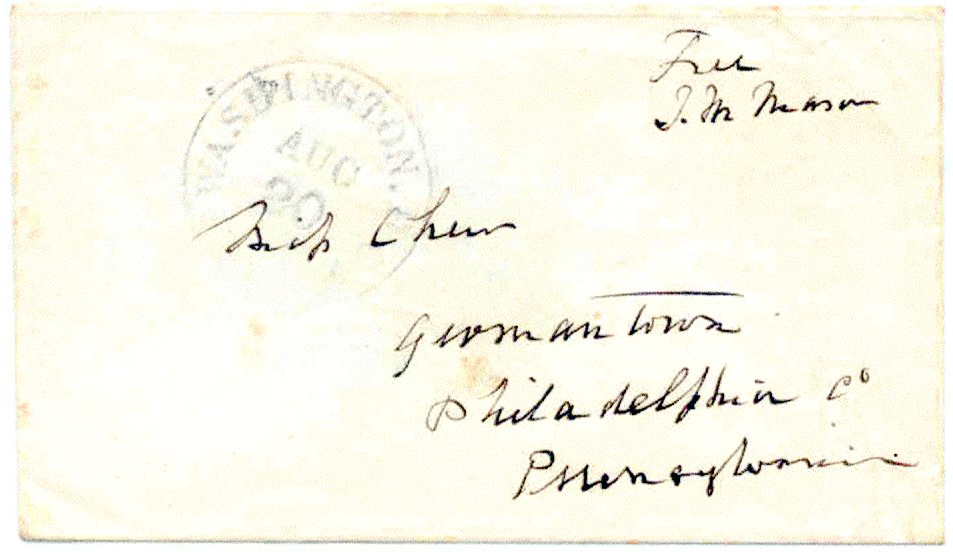 Free
J. M Mason
WASHINGTON.
AUG
20
Miss Chew
Germantown
Philadelphia Co
Pennsylvania